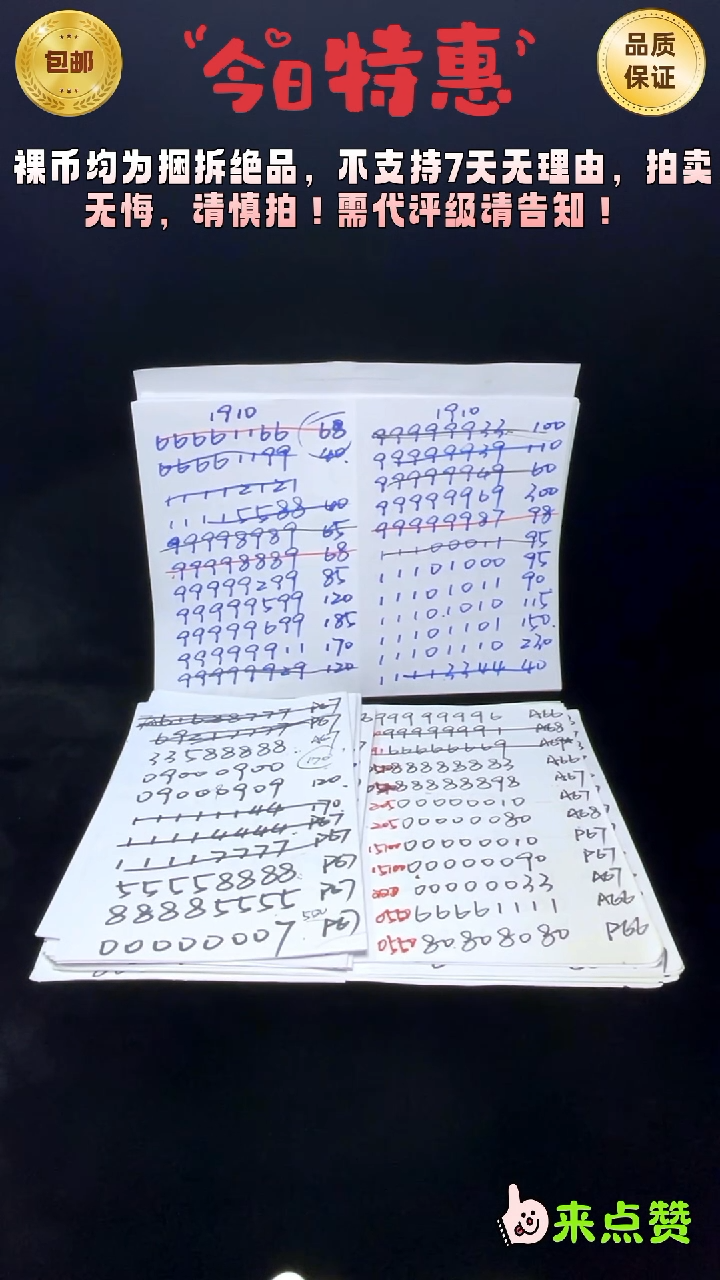 包邮
今日特惠
品质
保证
裸币均为捆拆绝品，不支持7天无理由，拍卖
无悔，请慎拍！需代评级请告知！
1910
66661166 68
66661199 40.
11112121
11115588 60
99998989 65
99998889 68
99999299 85
99999599 120
99999699 185
99999911 170
99999929 120
1910
99999933 100
99999939 110
99999949 60
99999969 300
99999987 98
11100011 95
11101000 95
11101011 90
11101010 115
11101101 150.
11101110 230
11113344 40
P67
69217777 P67
33588888. A67
09000900 170
09008909 120.
11111144 170
11114444 P67
11117777 P67
55558888 P67
88885555 P67
00000007 500 P67
99999996 A66
99999991 A68
66666669
88888883 A66
88888898 A67
205 00000010 A67
205 00000080 A68
15100 00000010 P67
15100 00000090 P67
00000033 A67
050 99991111 A66
0550 80808080 P66
来点赞